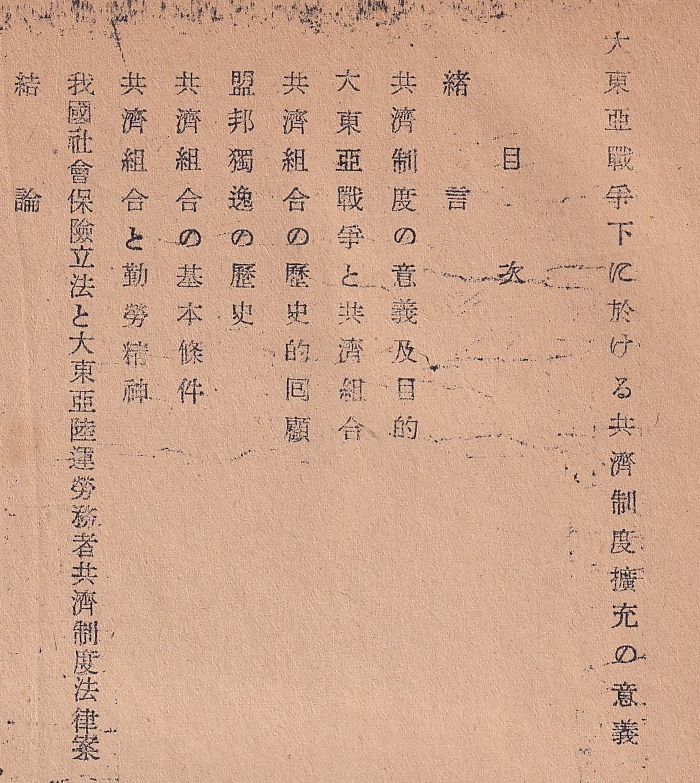 大東亞戰爭下に於ける共濟制度擴充の意義
目次
緒言
共濟制度の意義及目的
大東亞戰爭と共濟組合
共濟組合の歷史的回顧
盟邦獨逸の歷史
共濟組合の基本條件
共濟組合と勤勞精神
我國社會保險立法と大東亞陸運勞務者共濟制度法律案
結論